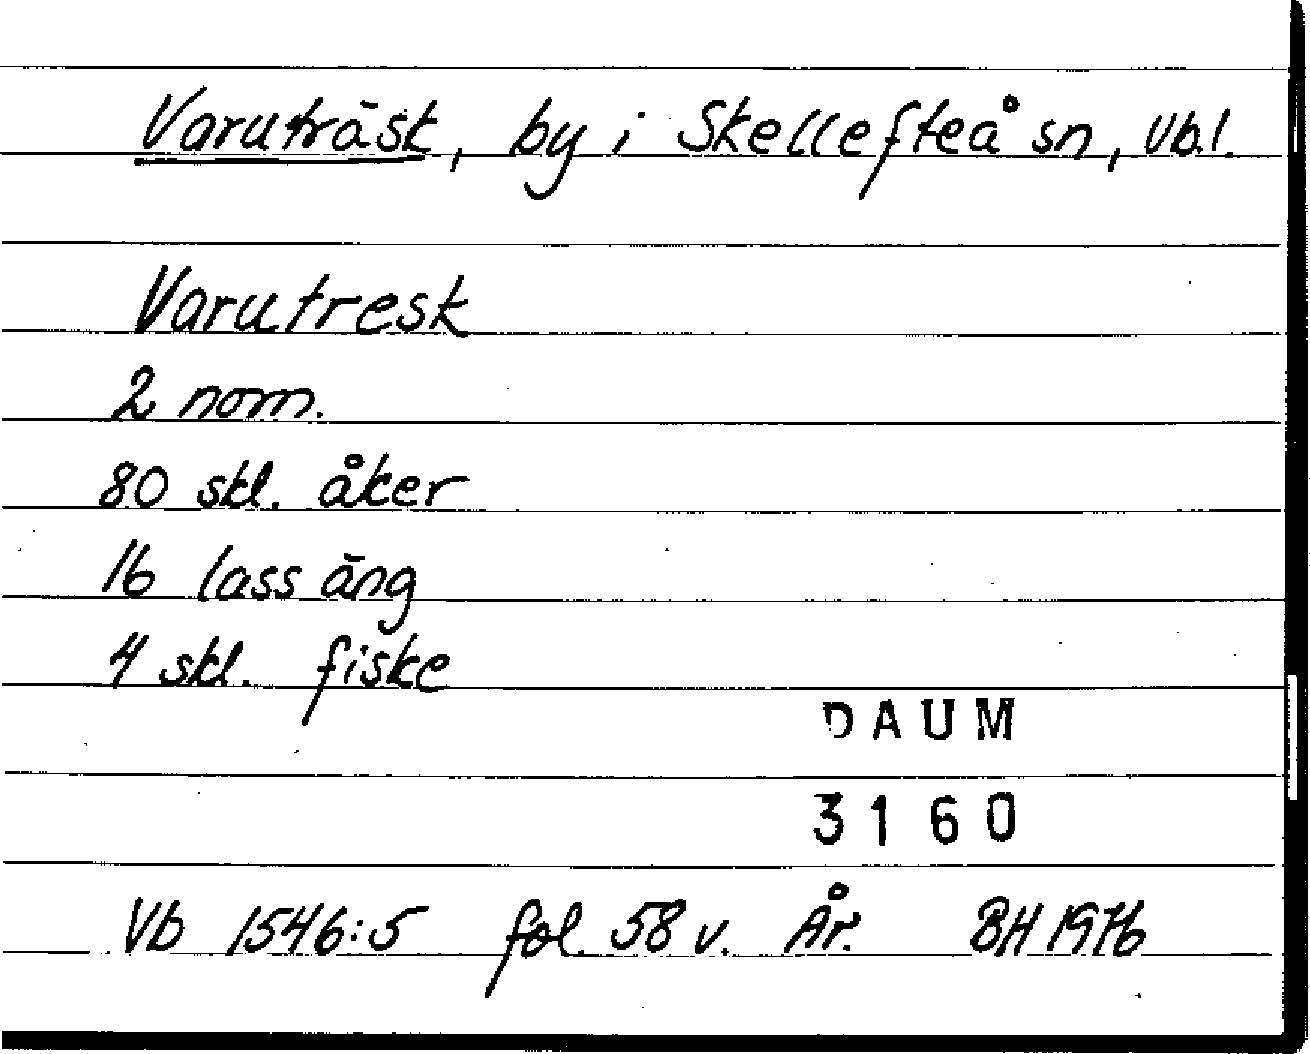 Varuträsk, by i Skellefteå sn, Vb.l.
Varutresk
2 nom.
80 skl. åker
16 lass äng
4 skl. fiske
DAUM
3160
Vb 1546:5 fol. 58 v. År. BH 1976